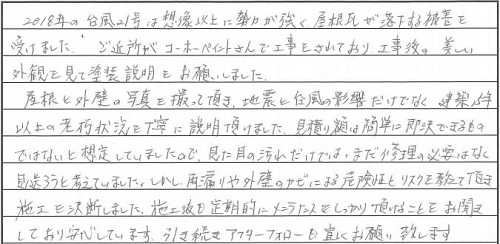 2018年の台風21号は想像以上に勢力が強く屋根瓦が落下する被害を
受けました。ご近所がユーホーペイントさんで工事をされており工事後の美しい
外観を見て塗装説明をお願いしました。
屋根と外壁の写真を撮って頂き、地震と台風の影響だけでなく建築
以上の老朽状況を丁寧に説明頂けました。見積り額は簡単に即決できるもの
ではないと想定していましたので、見た目の汚れだけでは、まだ修理の必要はなく
見送ろうと考えていました。しかし、雨漏りや外壁のカビによる危険性とリスクを教えて頂き
施工を決断しました。施工後も定期的にメンテナンスをしっかり頂けることをお聞き
しており安心しています。引き続きアフターフォローも宜しくお願い致します